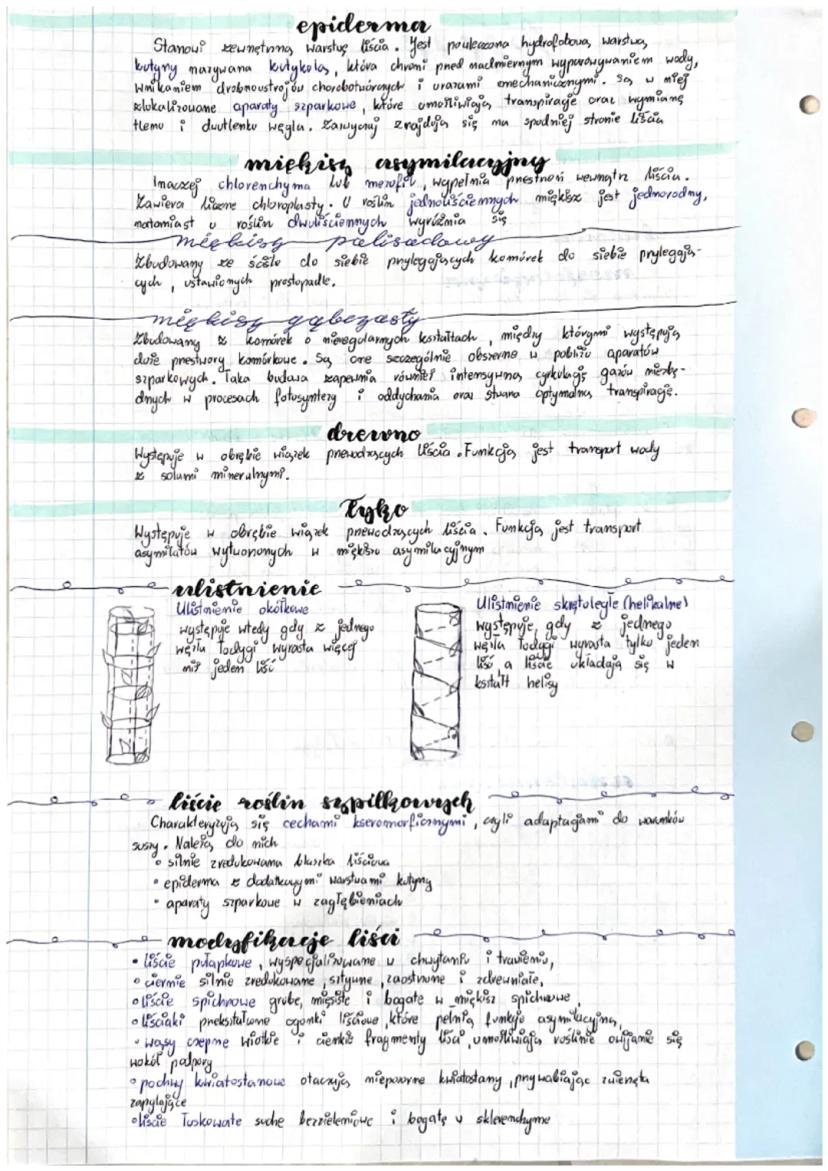 epiderma
Stanowi zewnętrzną warstwę liścia. Jest powleczona hydrofobową warstwą
kutyny nazywana kutykolą, która chroni przed nadmiernym wyparowywaniem wody,
wnikaniem drobnoustrojów chorobotwórczych i urazami mechanicznymi. Są w niej
zlokalizowane aparaty szparkowe, które umożliwiają transpirację oraz wymianę
tlenu i dwutlenku węgla. Zazwyczaj znajdują się na spodniej stronie liścia
miękisz asymilacyjny
Inaczej chlorenchyma lub mezofil, wypełnia przestrzeń wewnątrz liścia.
Zawiera liczne chloroplasty. U roślin jednoliściennych miękisz jest jednorodny,
natomiast u roślin dwuliściennych wyróżnia się
miękisz palisadowy
Zbudowany ze ściśle do siebie przylegających komórek do siebie przylegają-
cych, ustawionych prostopadle.
miękisz gąbczasty
Zbudowany z komórek o nieregularnych kształtach, między którymi występują
duże przestwory komórkowe. Są one szczególnie obszerne w pobliżu aparatów
szparkowych. Taka budowa zapewnia również intensywną cyrkulację gazów niezbę-
dnych w procesach fotosyntezy i oddychania oraz stwarza optymalną transpirację.
drewno
Występuje w obrębie wiązek przewodzących liścia. Funkcją jest transport wody
z solami mineralnymi.
Łyko
Występuje w obrębie wiązek przewodzących liścia. Funkcją jest transport
asymilatów wytworzonych w miękiszu asymilacyjnym
ulistnienie
Ulistnienie okółkowe
występuje wtedy gdy z jednego
węzła łodygi wyrasta więcej
niż jeden liść
Ulistnienie skrętoległe (helikalne)
występuje, gdy z jednego
węzła łodygi wyrasta tylko jeden
liść a liście układają się w
kształt helisy
liście roślin szpilkowych
Charakteryzują się cechami kseromorficznymi, czyli adaptacjami do warunków
suszy. Należą do nich
• silnie zredukowana blaszka liściowa
• epiderma z dodatkowymi warstwami kutyny
• aparaty szparkowe w zagłębieniach
modyfikacje liści
• liście pułapkowe, wyspecjalizowane w chwytaniu i trawieniu,
• ciernie silnie zredukowane, sztywne, zaostrzone i zdrewniałe,
• liście spichrzowe grube, mięsiste i bogate w miękisz spichrzowe,
• liściaki przekształcone ogonki liściowe, które pełnią funkcję asymilacyjną,
• wąsy czepne wiotkie i cienkie fragmenty liści, umożliwiają roślinie owijanie się
wokół podpory
• pochwy kwiatostanowe otaczają niepozorne kwiatostany, przywabiając zwierzęta
zapylające
• liście łuskowate suche bezzieleniowe i bogatę w sklerenchymę